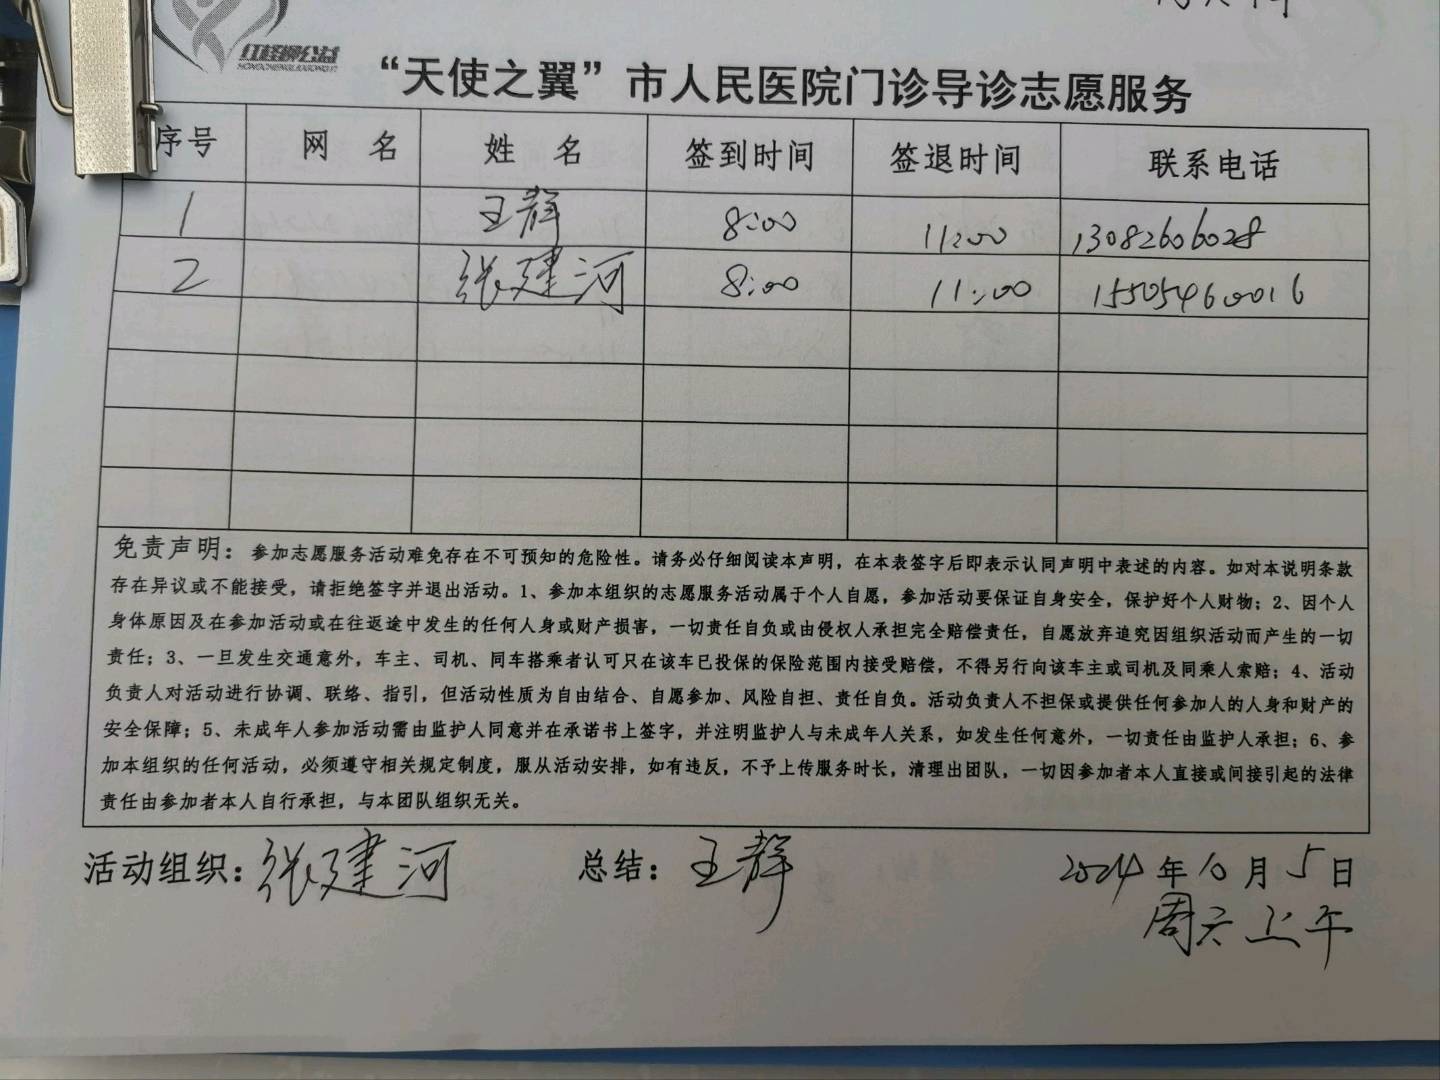 红柽柳公益
HONGCHENGLIUGONGYI
“天使之翼”市人民医院门诊导诊志愿服务
序号 网名 姓名 签到时间 签退时间 联系电话
1 王静 8:00 11:00 13082606028
2 张建河 8:00 11:00 15505460016
免责声明：参加志愿服务活动难免存在不可预知的危险性。请务必仔细阅读本声明，在本表签字后即表示认同声明中表述的内容。如对本说明条款
存在异议或不能接受，请拒绝签字并退出活动。1、参加本组织的志愿服务活动属于个人自愿，参加活动要保证自身安全，保护好个人财物；2、因个人
身体原因及在参加活动或在往返途中发生的任何人身或财产损害，一切责任自负或由侵权人承担完全赔偿责任，自愿放弃追究因组织活动而产生的一切
责任；3、一旦发生交通意外，车主、司机、同车搭乘者认可只在该车已投保的保险范围内接受赔偿，不得另行向该车主或司机及同乘人索赔；4、活动
负责人对活动进行协调、联络、指引，但活动性质为自由结合、自愿参加、风险自担、责任自负。活动负责人不担保或提供任何参加人的人身和财产的
安全保障；5、未成年人参加活动需由监护人同意并在承诺书上签字，并注明监护人与未成年人关系，如发生任何意外，一切责任由监护人承担；6、参
加本组织的任何活动，必须遵守相关规定制度，服从活动安排，如有违反，不予上传服务时长，清理出团队，一切因参加者本人直接或间接引起的法律
责任由参加者本人自行承担，与本团队组织无关。
活动组织：张建河 总结：王静 2024年10月5日
周六上午